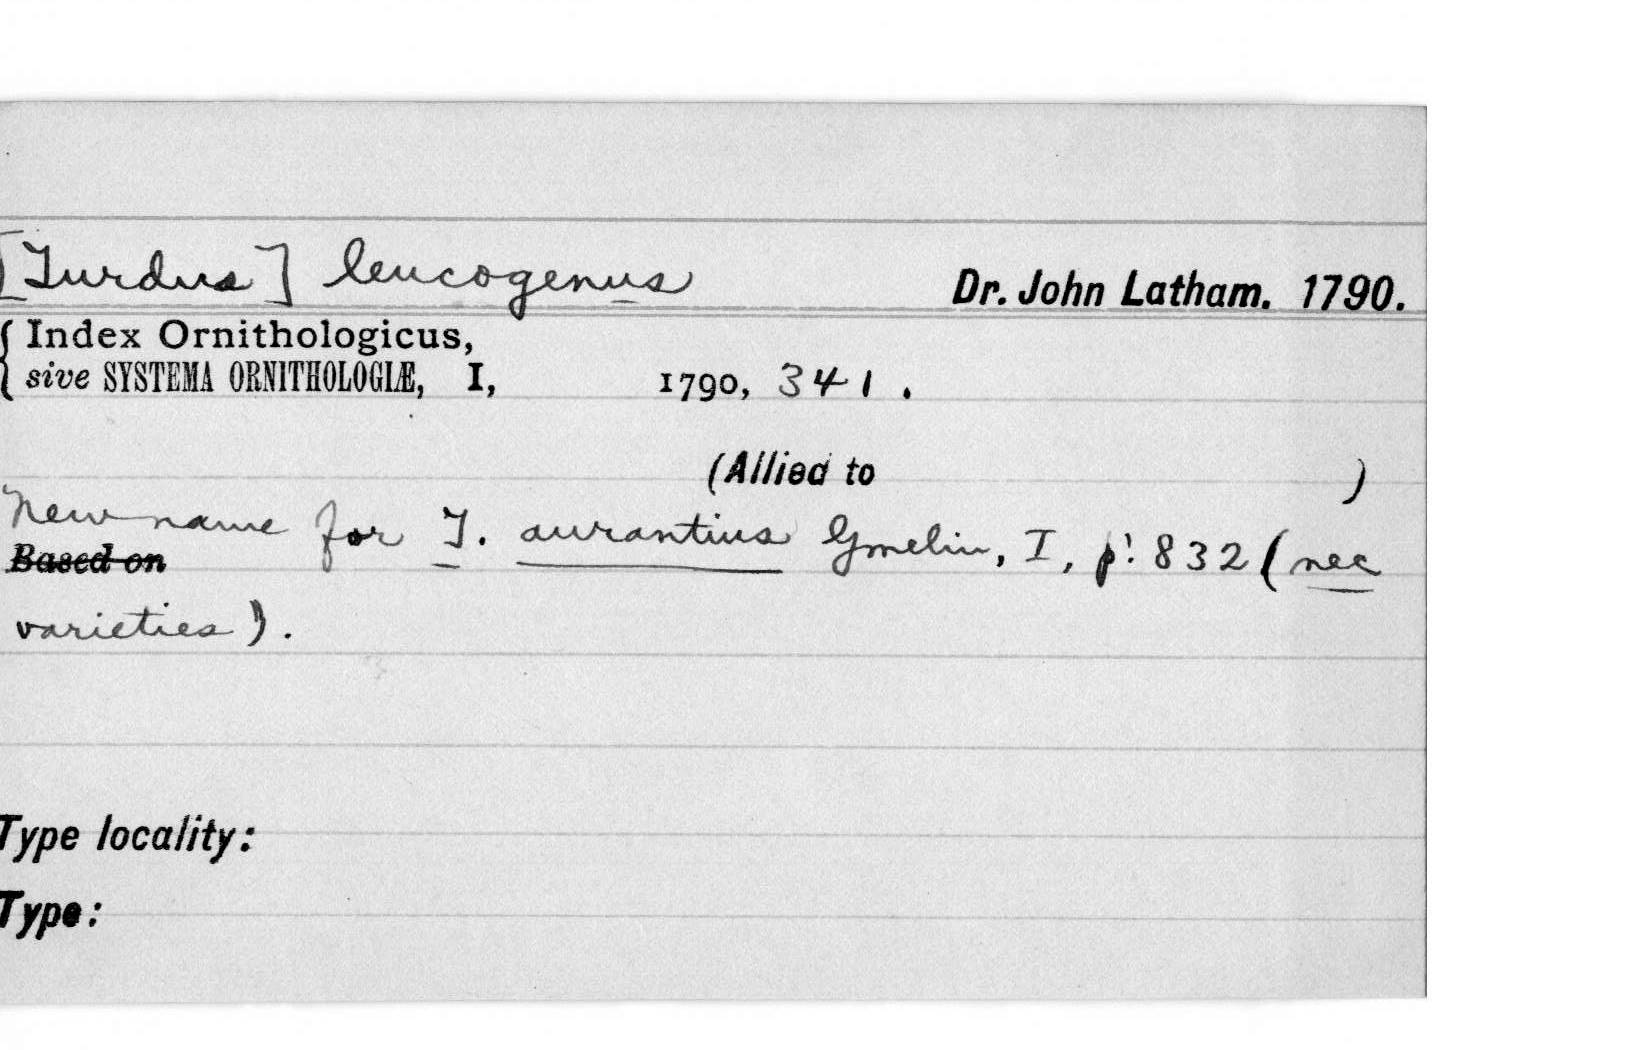 [Turdus] leucogenus Dr. John Latham. 1790.
Index Ornithologicus,
sive SYSTEMA ORNITHOLOGIÆ, I, 1790, 341.
(Allied to )
New name for T. aurantius Gmelin, I, p. 832 (nec
Based on
varieties).
Type locality:
Type: